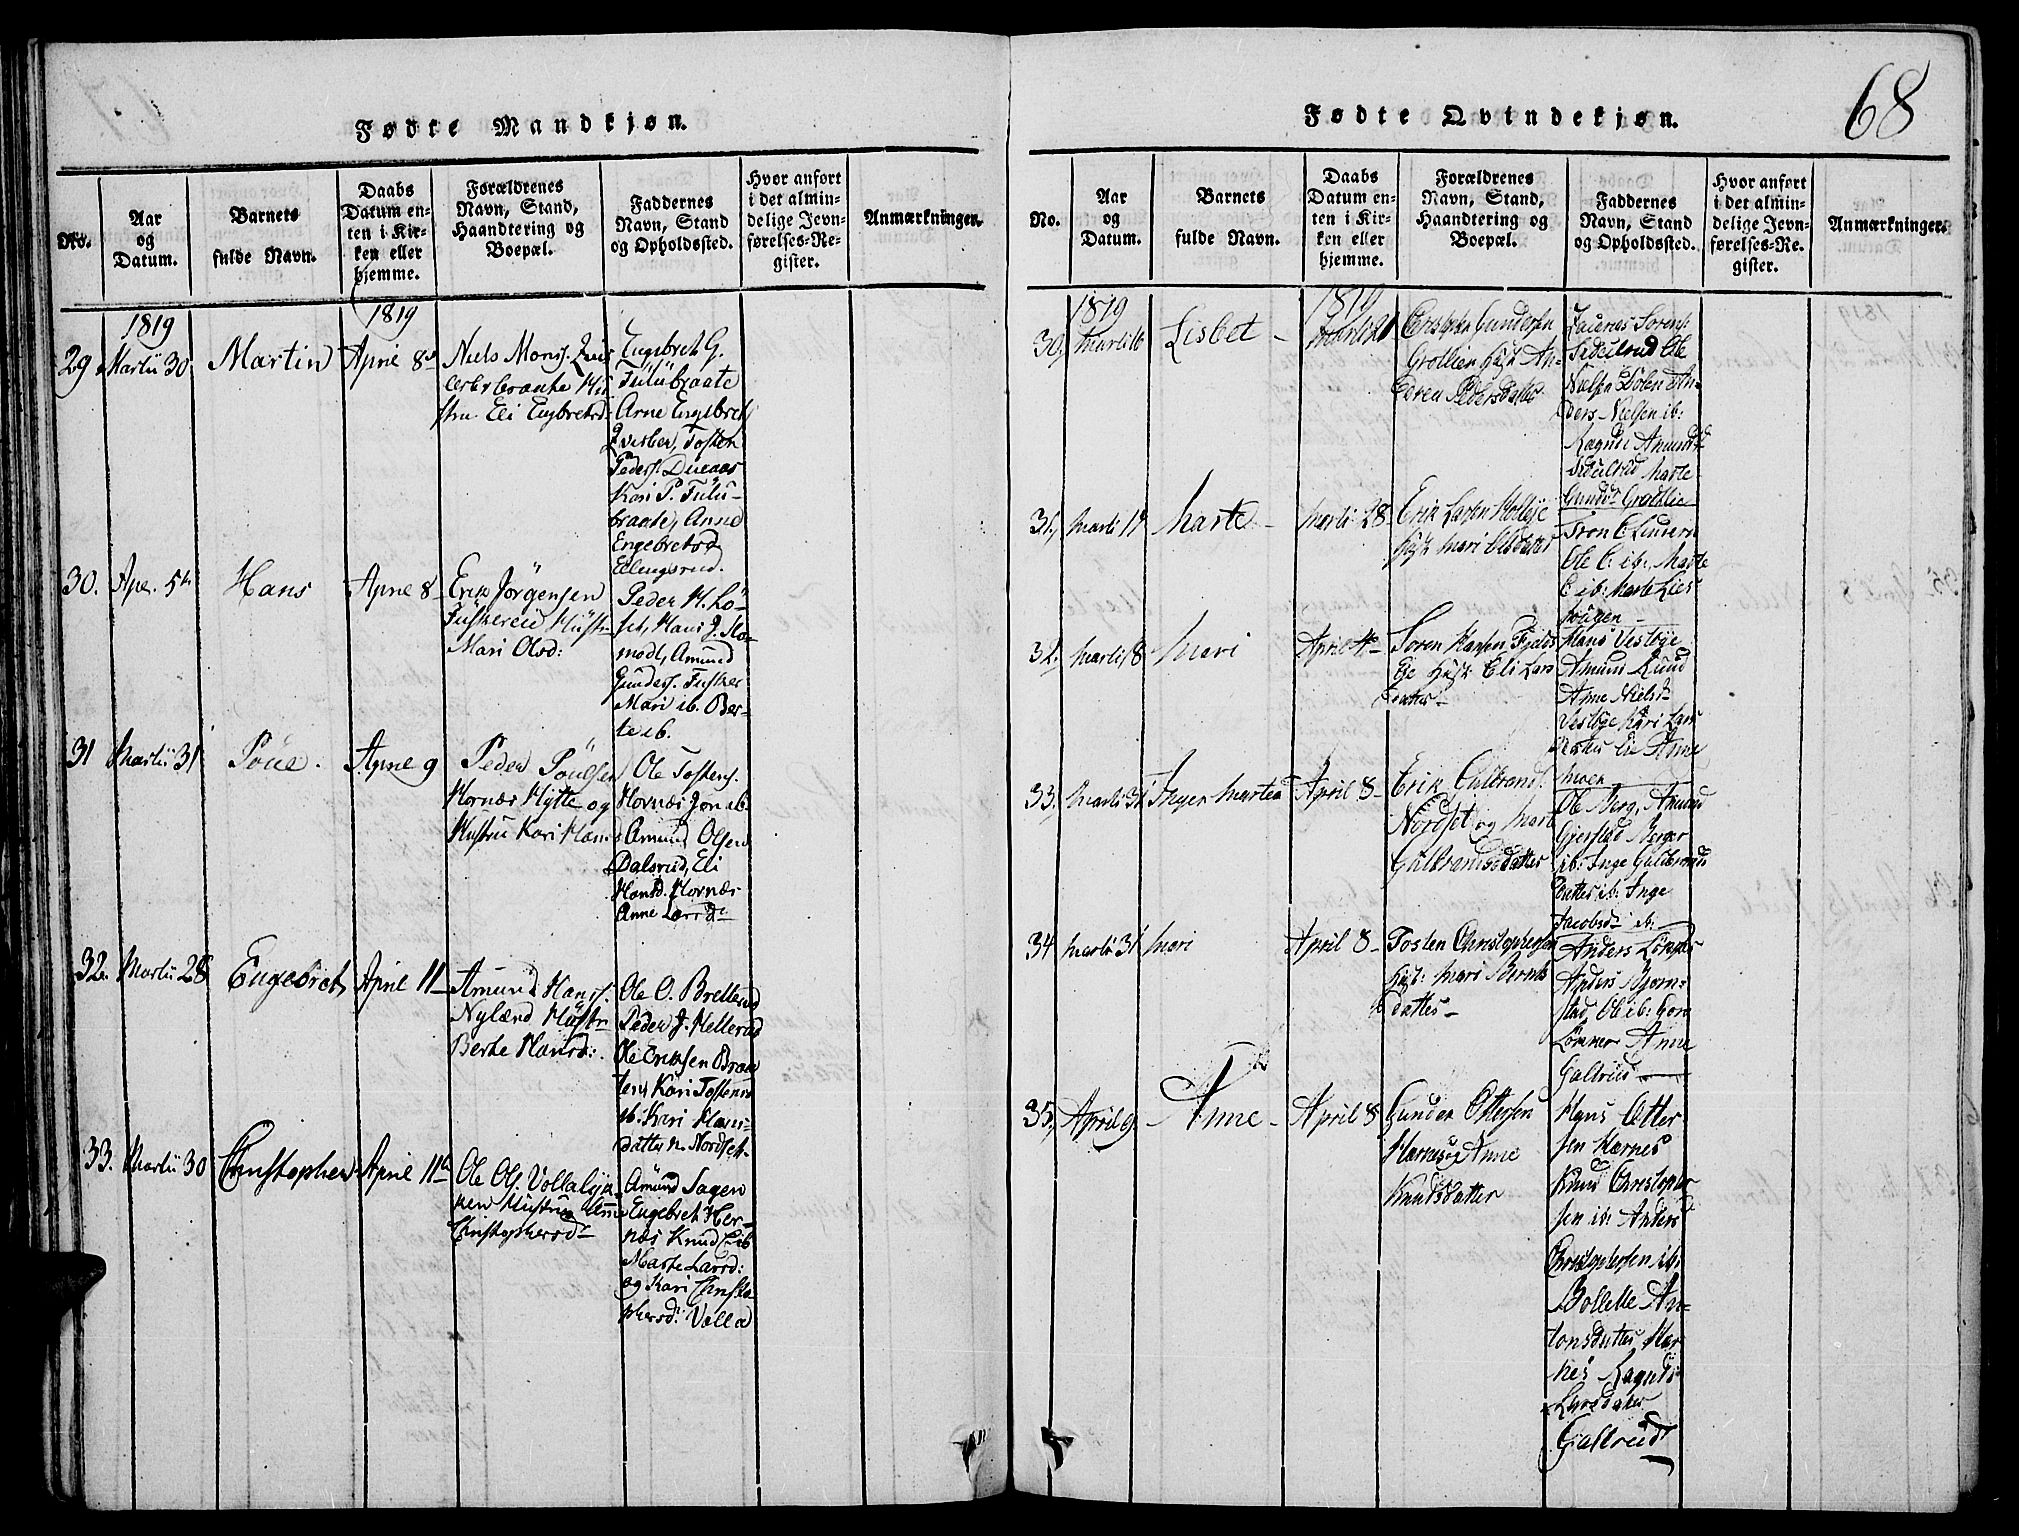 68
Fødte Mandkjøn.
No.
Aar
og
Datum.
Barnets
fulde Navn.
Daabs
Datum en-
ten i Kir-
ken eller
hjemme.
Forældrenes
Navn, Stand,
Haandtering og
Boepæl.
Faddernes
Navn, Stand
og Opholdssted.
Hvor anført
i det almin-
delige Jevn-
førelses-Re-
gister.
Anmærkninger.
1819
1819
29
Martii 30
Martin
April 8
Niels Monss.
Hu-
stru Eli Engbretsd:
Engebret G.
Fulubraate
Arne Engebret
Tosten
Peders.
Kari P. Fulu-
braate, Anne
Engebretsd
Ellingsrud.
30.
Apr. 5
Hans
April 8
Erik Jörgensen
Hustr
Mari Olsd:
Peder H. Lö-
set, Hans J. Mo-
moel, Amund
Gunders. Fusker
Mari ib. Ber-
te ib.
31
Martii 31
Poul.
April 9
Peder Poulsen
Hornæs Hytte og
Hustru Kari Hans
Ole Tostens.
Hornæs Jon ib.
Amund Olsen
Dalsrud, Eli
Hansd. Hornæs
Anne Larsd.
32.
Martii 28
Engebret
April 11
Amund Hanss.
Nylænd Hustr
Berte Hansd:
Ole O. Brellerud
Peder J. Hellerud
Ole Eriksen Braa
ten Kari Tostens
ib. Kari Hans-
datter n. Nordset
33.
Martii 30
Christopher
April 11
Ole Ols. Vollalyk
ken Hustru Anne
Christophersd
Amund Sagen
Engebret Her-
næs Knud E ib
Marte Larsd:
og Kari Christo
phersd: Volla
Fødte Qvindekjøn.
No.
Aar
og
Datum.
Barnets
fulde Navn.
Daabs
Datum en-
ten i Kir-
ken eller
hjemme.
Forældrenes
Navn, Stand,
Haandtering og
Boepæl.
Faddernes
Navn, Stand
og Opholdssted.
Hvor anført
i det almin-
delige Jevn-
førelses-Re-
gister.
Anmærkninger.
1819
1819
30,
Marti 16
Lisbet
Marti 21
Christopher Gundersen
Grøtlien Hust An-
Pedersdatter
Sorens.
Ole
Nielsen Dolen An-
ders Nielsen ib:
Ragnil Amunds
Marte
Gundsd Grøtlie
31,
Marti 17
Marte
Marti 28
Erik Larsen
Hust Mari Olsdatter
Tron E
Ole E. ib: Marte
E ib: Marte Lies
hougen
32,
Marti 8
Mari
April 4
Soren Hansen Fjelds
Eje Hust Eli Lars
datter
Hans Vestbye
Amun Lund
Anne Nielsd
Vestbye Kari Lars
datter Lie Anne
Moen
33,
Marti 31
Inger Martea
April 8
Erik Gulbrands.
Nordset og Mart
Gulbrandsdatter
Ole Berg, Amund
Gjerstad Berger
ib: Inge Gulbrands
datter ib: Inge
Jacobsd ib:
34
Marti 31
Mari
April 8
Tosten Christophersen
Hust: Mari Bernts
datter
Anders
Anders Bjorn-
stad Ole ib: Gore
Lömner Anne
Galtrud
35,
April 9
Anne
April 8
Gunder Ottersen
Harnes og Anne
Knudsdatter
Hans Otter-
sen Harnes
Knud Christopher
sen ib: Anders
Christophersen ib:
Bollette An-
tonsdatter Har-
nes Ragnil
Larsdatter
Galtrud